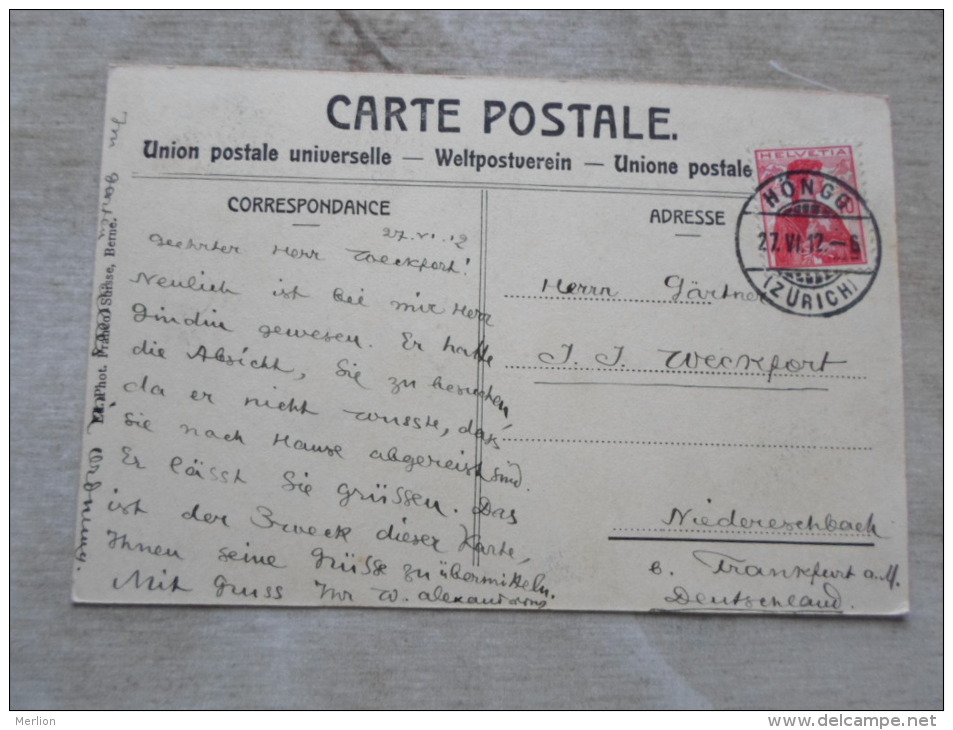 CARTE POSTALE.
Union postale universelle — Weltpostverein — Unione postale
HELVETIA
HÖNGG
27.VI.12.–6
(ZÜRICH)
CORRESPONDANCE
27.VI.12
Geehrter Herr Weckfort!
Neulich ist bei mir Herr
Gindin gewesen. Er hatte
die Absicht, Sie zu besuchen,
da er nicht wusste, das
Sie nach Hause abgereist sind.
Er lässt Sie grüssen. Das
ist der Zweck dieser Karte,
Ihnen seine Grüsse zu übermitteln.
Mit Gruss Ihr W.
Im Garten Ordnung.
Phot. Franco-Suisse, Berne.
ADRESSE
Herrn Gärtner
J. J. Weckfort
Niedereschbach
b. Frankfurt a.M.
Deutschland.
Merlion
www.delcampe.net